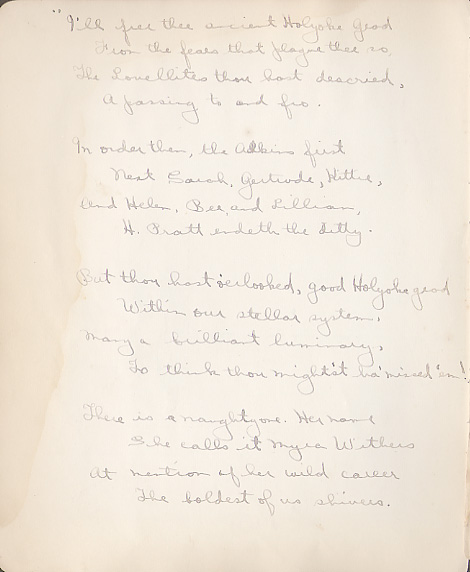 "I'll free thee ancient Holyoke Grad
From the fears that plague thee so,
The Lovellites thou hast descried,
A passing to and fro.
In order then, the Adkins first
Next Sarah, Gertrude, Kittie,
And Helen, Bee, and Lillian,
H. Pratt endeth the ditty.
But thou hast o'erlooked, good Holyoke grad
Within our stellar system,
Many a brilliant luminary,
To think thou might'st ha' missed 'em!
There is a naughty one. Her name
She calls it Myra Withers
At mention of her wild career
The boldest of us shivers.